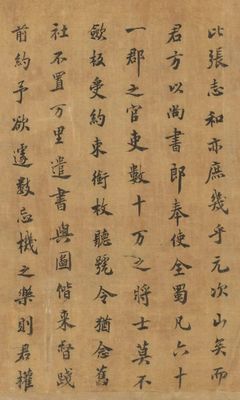 此張志和亦庶幾乎元次山矣而
君方以尚書郎奉使全蜀凡六十
一郡之官吏數十万之將士莫不
斂板受約束銜枚聽號令猶念舊
社不置万里遣書與圖偕来督踐
前約予欲遂數忘機之樂則君權